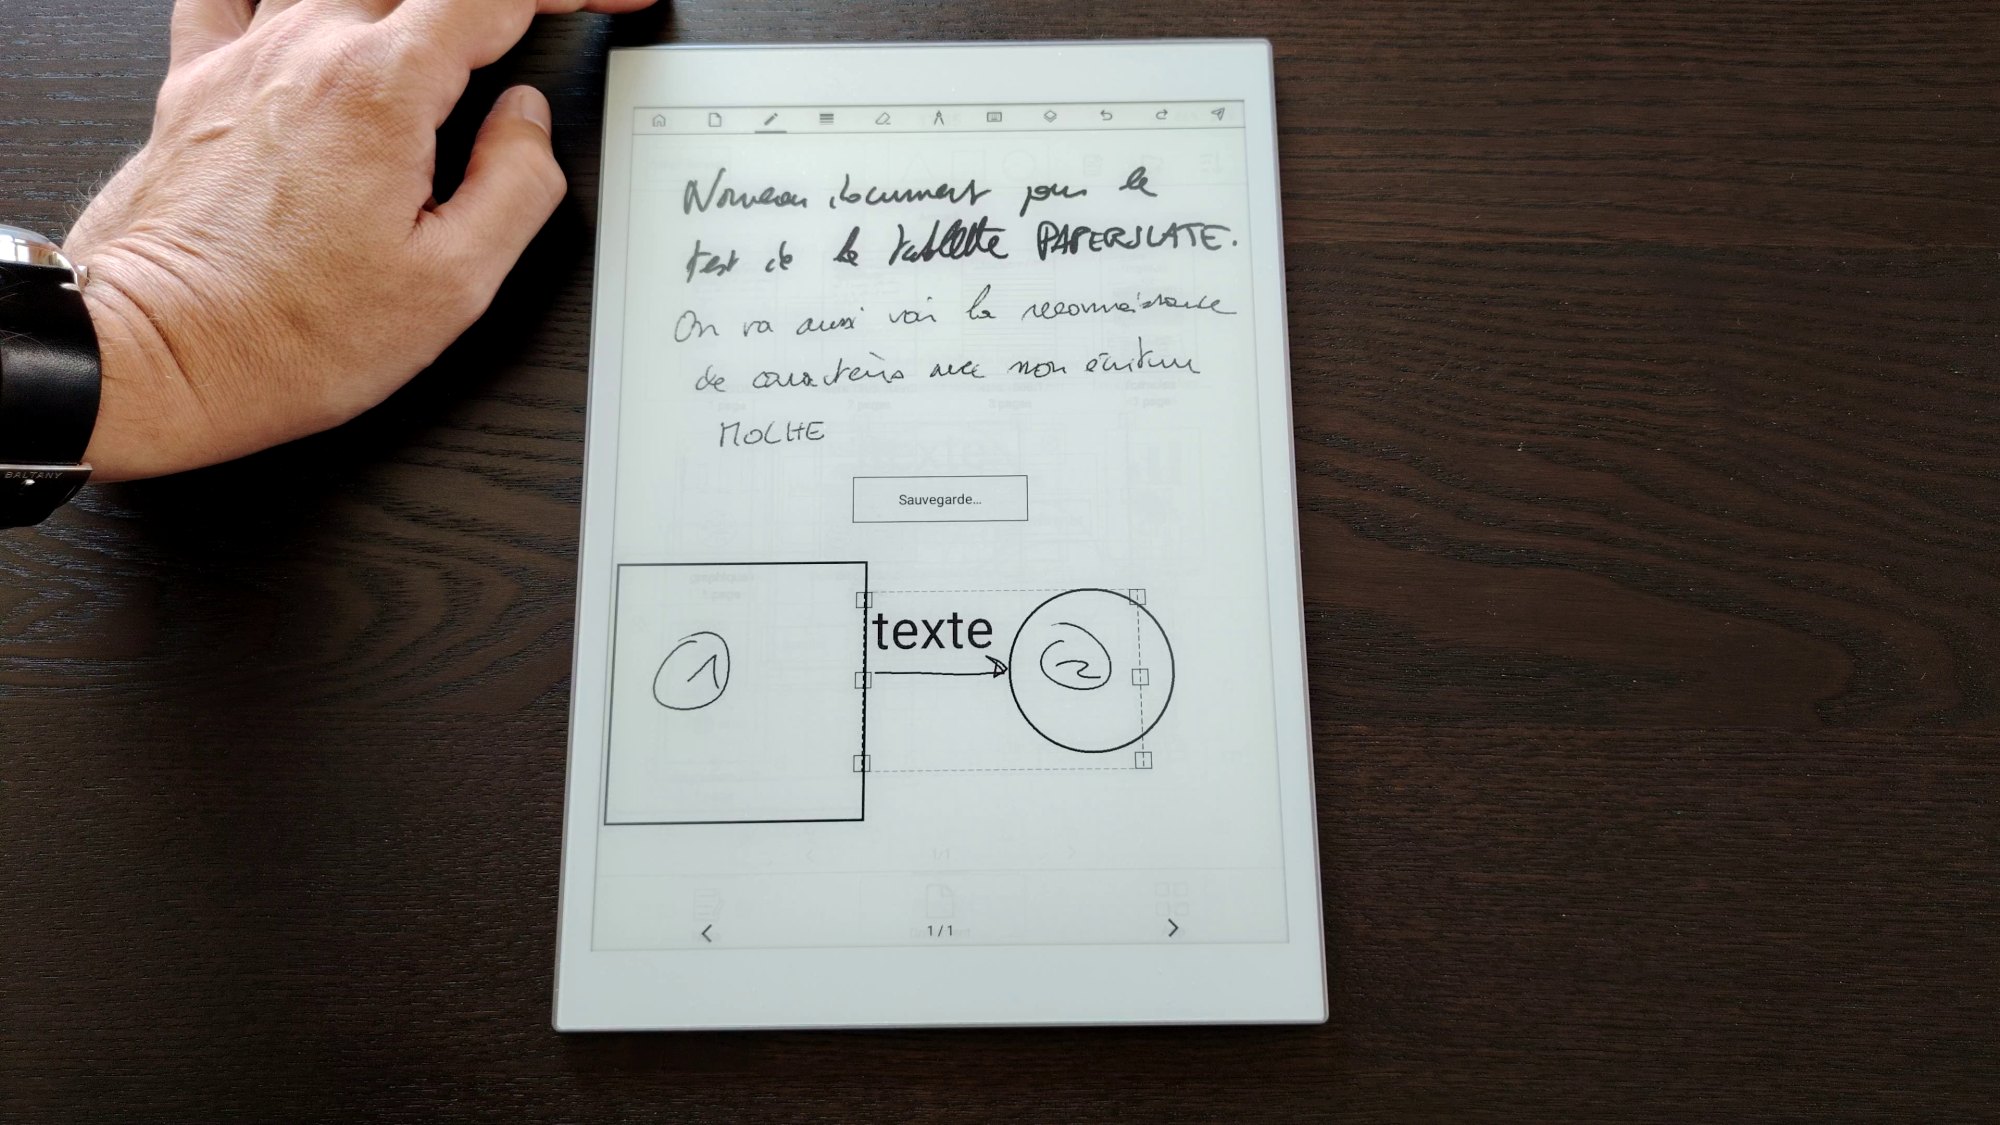 Nouveau document pour le
test de la tablette PAPERSLATE.
On va aussi voir la reconnaissance
de caractères avec mon écriture
MOCHE
Sauvegarde...
texte
1
2
1 / 1
BALTANY